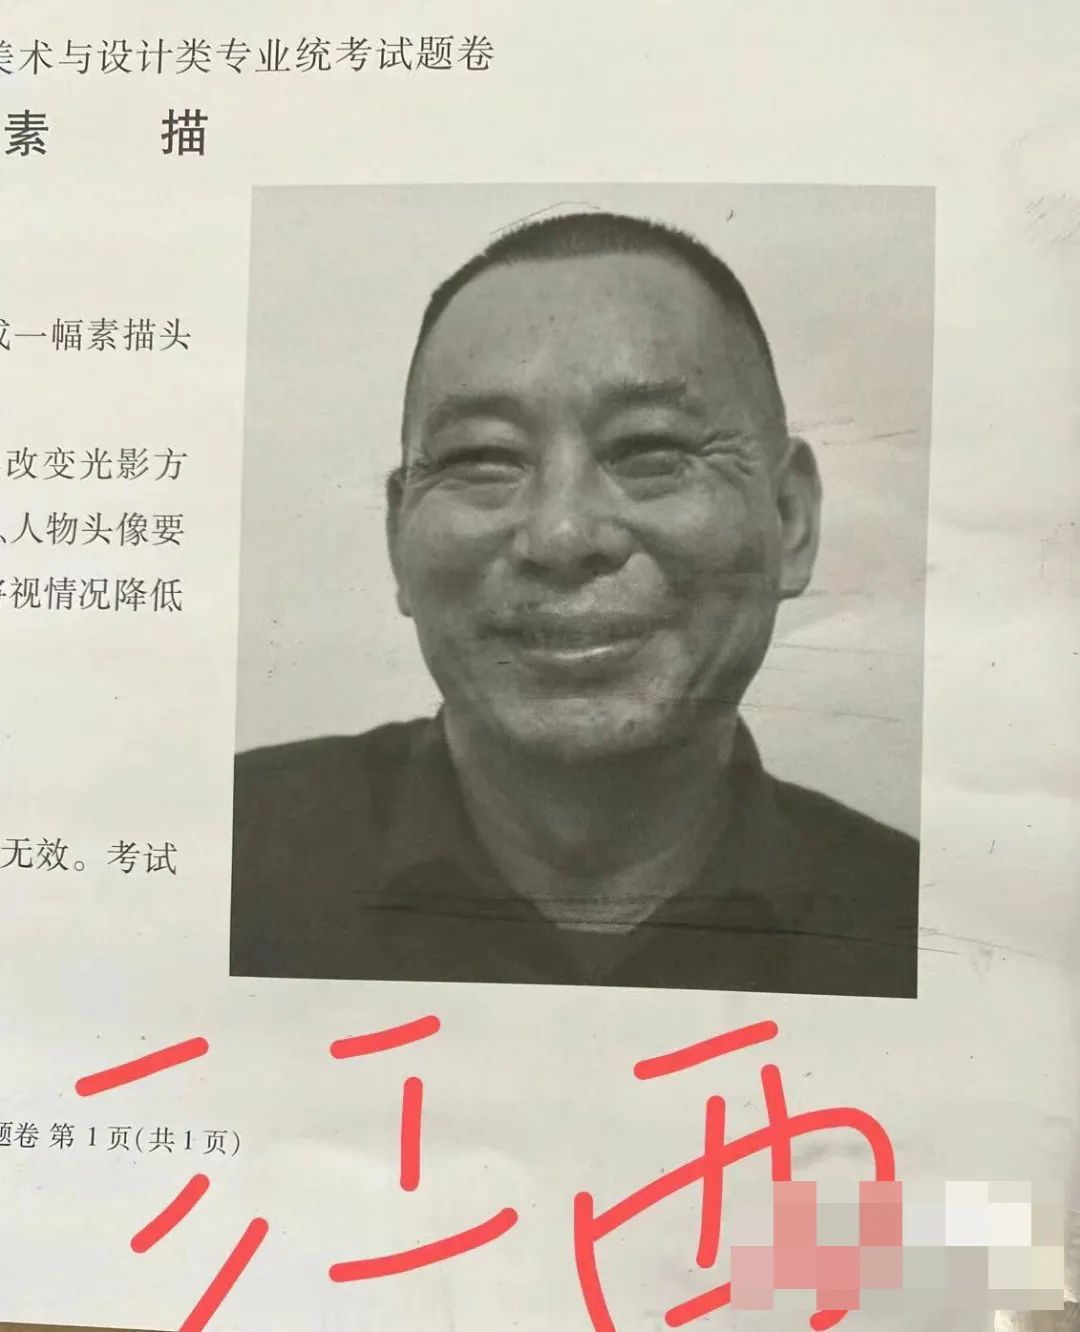 美术与设计类专业统考试题卷
素 描
成一幅素描头
改变光影方
、人物头像要
将视情况降低
无效。考试
题卷 第1页(共1页)
江西